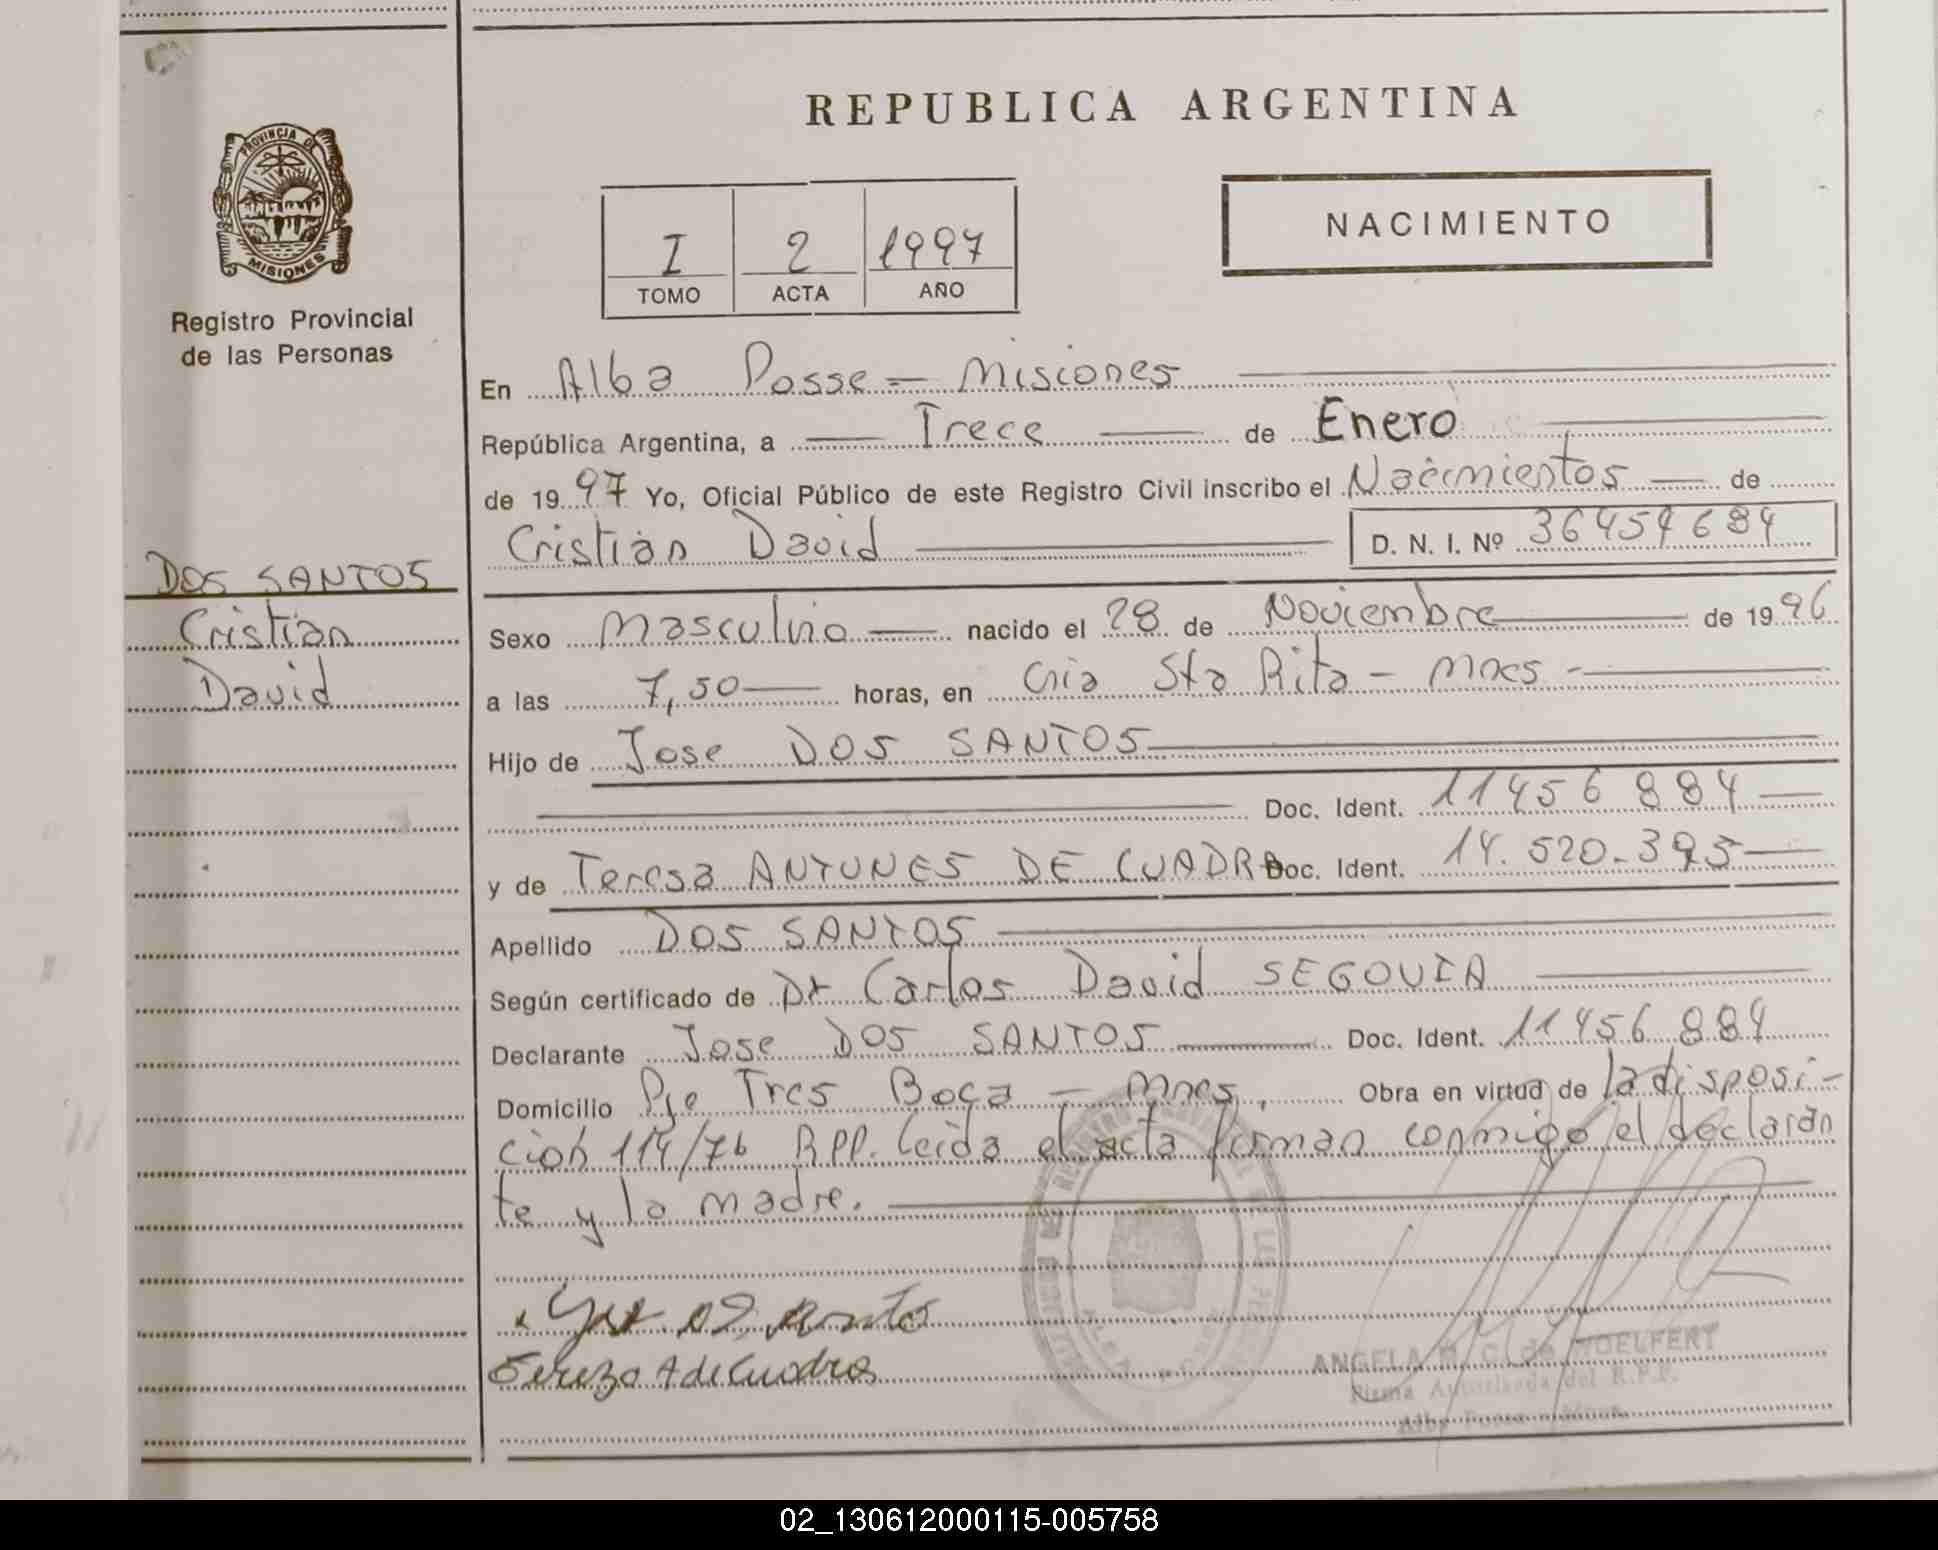 REPUBLICA ARGENTINA
PROVINCIA DE
MISIONES
Registro Provincial
de las Personas
NACIMIENTO
I 2 1997
TOMO ACTA AÑO
En Alba Posse - Misiones
República Argentina, a Trece de Enero
de 1997 Yo, Oficial Público de este Registro Civil inscribo el Nacimientos de
Cristian David D. N. I. Nº 36454684
DOS SANTOS
Cristian
David
Sexo Masculino nacido el 28 de Noviembre de 1996
a las 7,50 horas, en Cnia Sta Rita - Mnes -
Hijo de Jose DOS SANTOS
Doc. Ident. 11456884
y de Teresa ANTUNES DE CUADRA Doc. Ident. 14.520.395
Apellido DOS SANTOS
Según certificado de Dr Carlos David SEGOVIA
Declarante Jose DOS SANTOS Doc. Ident. 11456884
Domicilio Pje Tres Boca - Mnes. Obra en virtud de la disposi-
cion 114/76 RPP. Leida el acta firman conmigo el declaran
te y la madre.
Tereza A de Cuadra
ANGELA M. C. de WOELFERT
Firma Autorizada del R.P.P.
Alba Posse - Mnes.
02_130612000115-005758